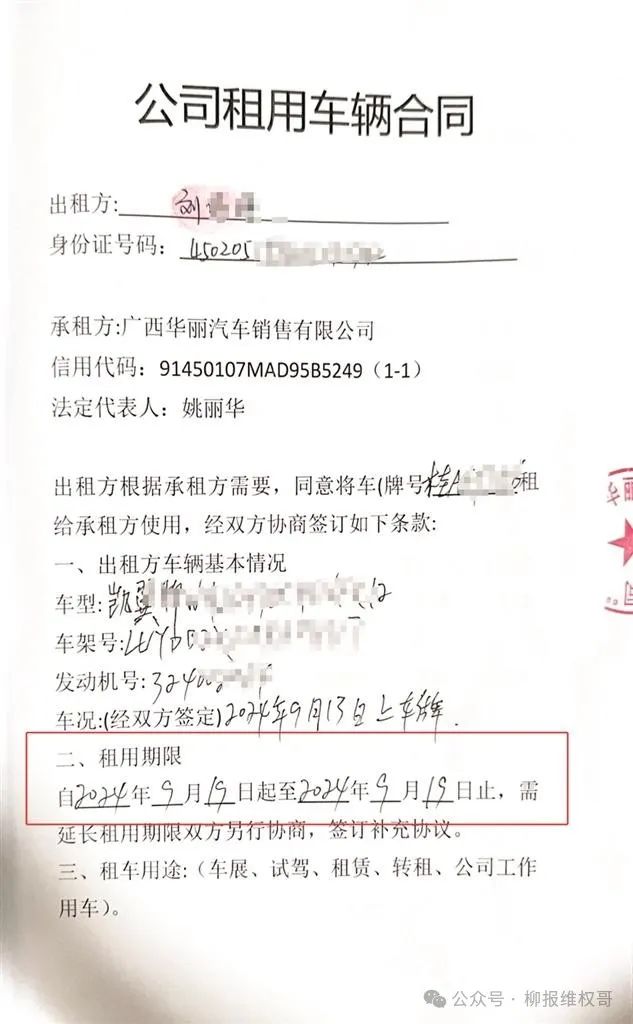 公司租用车辆合同
出租方:刘
身份证号码：450205
承租方:广西华丽汽车销售有限公司
信用代码：91450107MAD95B5249（1-1）
法定代表人：姚丽华
出租方根据承租方需要，同意将车(牌号桂A 租
给承租方使用，经双方协商签订如下条款:
一、出租方车辆基本情况
车型:凯翼
车架号:
发动机号:324
车况:(经双方签定)2024年9月13日上车牌.
二、租用期限
自2024年9月19日起至2024年9月19日止，需
延长租用期限双方另行协商，签订补充协议。
三、租车用途:（车展、试驾、租赁、转租、公司工作
用车）。
公众号・柳报维权哥